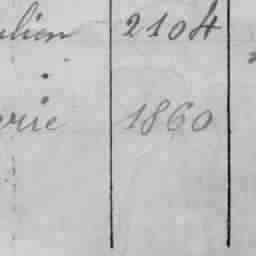 ulien 2104
erie 1860